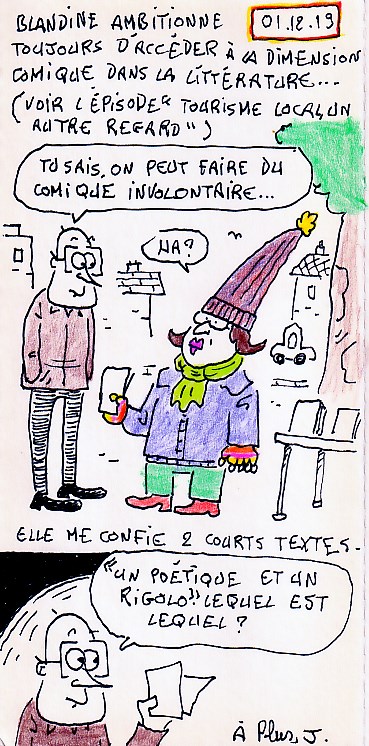 BLANDINE AMBITIONNE
01.12.19
TOUJOURS D'ACCÉDER À LA DIMENSION
COMIQUE DANS LA LITTÉRATURE...
(VOIR L'ÉPISODE "TOURISME LOCAL, UN
AUTRE REGARD")
TU SAIS, ON PEUT FAIRE DU
COMIQUE INVOLONTAIRE...
HA?
ELLE ME CONFIE 2 COURTS TEXTES.
"UN POÉTIQUE ET UN
RIGOLO" LEQUEL EST
LEQUEL?
À Plus, J.